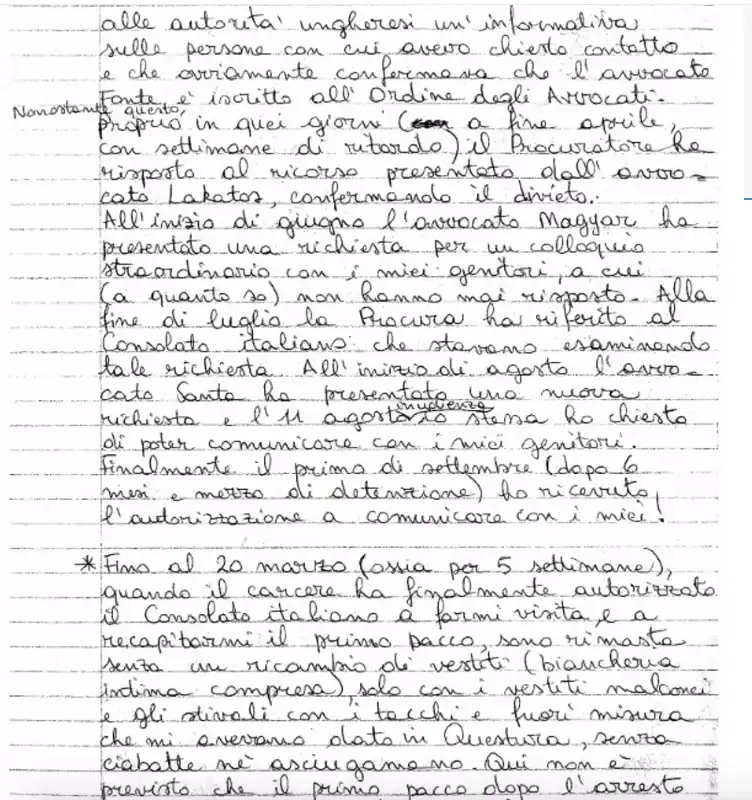 alle autorità ungheresi un'informativa
sulle persone con cui avevo chiesto contatto
e che ovviamente confermava che l'avvocato
Fonte è iscritto all'Ordine degli Avvocati.
Nonostante questo,
proprio in quei giorni (a fine aprile,
con settimane di ritardo) il Procuratore ha
risposto al ricorso presentato dall'avvo-
cato Lakatos, confermando il divieto.
All'inizio di giugno l'avvocato Magyar ha
presentato una richiesta per un colloquio
straordinario con i miei genitori, a cui
(a quanto so) non hanno mai risposto. Alla
fine di luglio la Procura ha riferito al
Consolato italiano che stavano esaminando
tale richiesta. All'inizio di agosto l'avvo-
cato Santa ha presentato una nuova
richiesta e l'11 agosto io stessa ho chiesto
in udienza
di poter comunicare con i miei genitori.
Finalmente il primo di settembre (dopo 6
mesi e mezzo di detenzione) ho ricevuto
l'autorizzazione a comunicare con i miei!
* Fino al 20 marzo (ossia per 5 settimane),
quando il carcere ha finalmente autorizzato
il Consolato italiano a farmi visita e a
recapitarmi il primo pacco, sono rimasta
senza un ricambio di vestiti (biancheria
intima compresa), solo con i vestiti malconci
e gli stivali con i tacchi e fuori misura
che mi avevano dato in Questura, senza
ciabatte nè asciugamano. Qui non è
previsto che il primo pacco dopo l'arresto